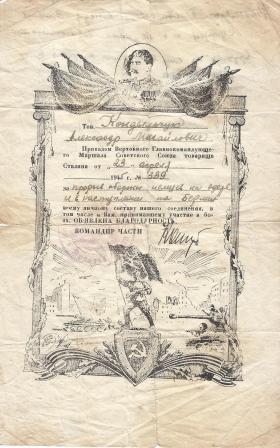 Тов. Кондратюк
Александр Михайлович
Приказом Верховного Главнокомандующе-
го Маршала Советского Союза товарища
Сталина от „23“ апреля
1945 г. № 339
за прорыв обороны немцев на Одере
и в наступлении на Берлин
всему личному составу нашего соединения, в
том числе и Вам, принимавшему участие в бо-
ях, ОБ'ЯВЛЕНА БЛАГОДАРНОСТЬ.
КОМАНДИР ЧАСТИ